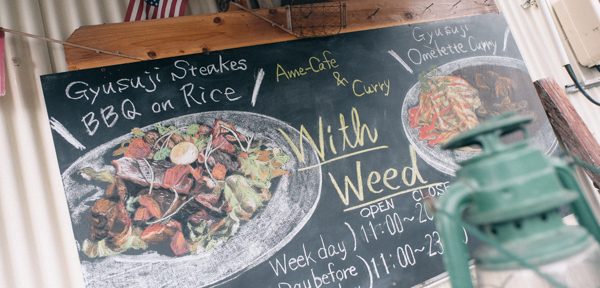 Gyusuji Steakes
BBQ on Rice
Ame-Cafe
&
Curry
Gyusuji
Omelette Curry
With
Weed
OPEN CLOSE
Week day) 11:00~2
Day before) 11:00~23: